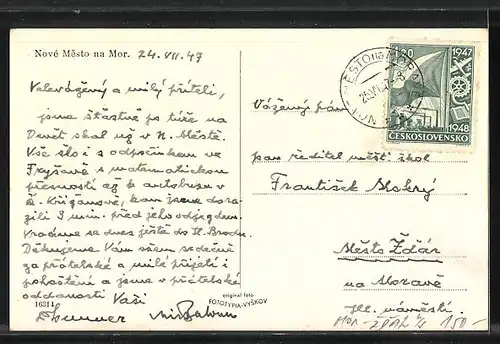 Nové Město na Mor. 24. VII. 47
Velevážený a milý příteli,
jsme šťastně po túře na
Devět skal už v N. Městě.
Vše šlo i s odpočinkem ve
Fryšavě s matematickou
přesností až k autobusu v
Č. Křižanově, kam jsme dora-
zili 3 min. před jeho odjezdem.
Vracíme se dnes ještě do H. Brodu.
Děkujeme Vám všem srdečně
za přátelské a milé přijetí i
pohoštění a jsme v přátelské
oddanosti Vaši
16311
original foto
FOTOTYPIA-VYŠKOV
1·20
1947
1948
ČESKOSLOVENSKO
Vážený pán
pan ředitel měšť. škol
František Mokrý
Město Žďár
na Moravě
Hl. náměstí.
150-